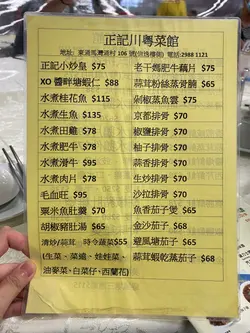 正記川粵菜館
地址: 東涌馬灣涌村 106號(信逸樓側) 電話:2988 1121
正記小炒皇 $75
XO 醬畔塘蝦仁 $88
水煮桂花魚 $115
水煮生魚 $135
水煮田雞 $78
水煮肥牛 $78
水煮滑牛 $95
水煮肉片 $78
毛血旺 $95
粟米魚肚羹 $70
胡椒豬肚湯 $65
清炒/蒜茸 時令蔬菜$55
(生菜、菜遠、娃娃菜、
油麥菜、白菜仔、西蘭花)
老干媽肥牛藕片 $75
蒜茸粉絲蒸骨腩 $65
剁椒蒸魚雲 $75
京都排骨 $70
椒鹽排骨 $70
柚子排骨 $70
蒜香排骨 $70
生炒排骨 $70
沙拉排骨 $70
魚香茄子煲 $65
金沙茄子 $68
避風塘茄子 $68
蒜茸蝦乾蒸茄子 $68